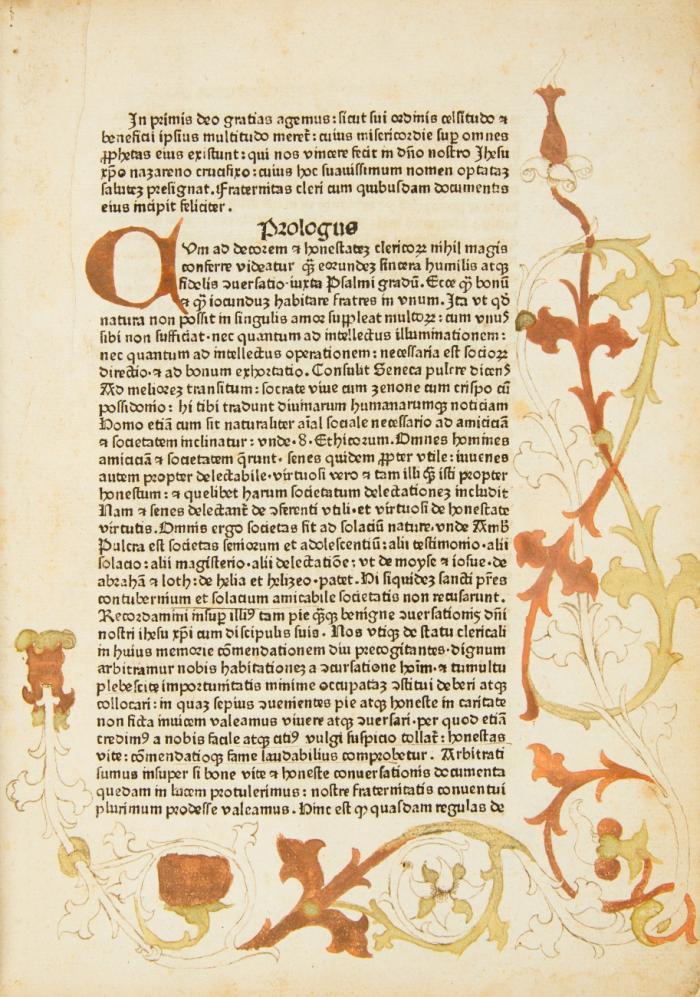 In primis deo gratias agemus: sicut sui ordinis celsitudo ⁊
beneficii ipsius multitudo meret̄: cuius misericordie sup̱ omnes
ꝓphetas eius existunt: qui nos vincere fecit in dn̄o nostro Jhesu
xp̄o nazareno crucifixo: cuius hoc suauissimum nomen optataꝫ
saluteꝫ presignat. Fraternitas cleri cum quibusdam documentis
eius incipit feliciter.
Prologus
CVm ad decorem ⁊ honestateꝫ clericoꝝ nihil magis
conferre videatur q̄ꝫ eorundeꝫ sincera humilis atqꝫ
fidelis ꝯuersatio·iuxta Psalmi gradū. Ecce q̄ꝫ bonū
⁊ q̄ꝫ iocunduꝫ habitare fratres in vnum. Ita vt qḋ
natura non possit in singulis amor suppleat multoꝝ: cum vnuꝰ
sibi non sufficiat·nec quantum ad intellectus illuminationem:
nec quantum ad intellectus operationem: necessaria est socioꝝ
directio·⁊ ad bonum exhortatio. Consulit Seneca pulcre dicenꝰ
Ad melioreꝫ transitum: socrate viue cum zenone cum crispo cū
possidonio: hi tibi tradunt diuinarum humanarumqꝫ noticiam
Homo etiā cum sit naturaliter aīal sociale necessario ad amiciciā
⁊ societatem inclinatur: vnde·8·Ethicorum. Omnes homines
amiciciā ⁊ societatem q̄runt· senes quidem ꝓpter vtile: iuuenes
autem propter delectabile·virtuosi vero ⁊ tam illi q̄ꝫ isti propter
honestum: ⁊ quelibet harum societatum delectationeꝫ includit
Nam ⁊ senes delectant̄ de ꝯferenti vtili·et virtuosi de honestate
virtutis. Omnis ergo societas fit ad solaciū nature·vnde Amb̄
Pulcra est societas seniorum et adolescentiū: alii testimonio·alii
solacio: alii magisterio·alii delectatiōe: vt de moyse ⁊ iosue·de
abrahā ⁊ loth: de helia et helizeo·patet. Hi siquideꝫ sancti pr̄es
contubernium et solacium amicabile societatis non recusarunt.
Recordamini insup̱ illiꝰ tam pie q̄ꝫqꝫ benigne ꝯuersationis dn̄i
nostri ihesu xp̄i cum discipulis suis. Nos vtiqꝫ de statu clericali
in huius memorie cōmendationem diu precogitantes·dignum
arbitramur nobis habitationeꝫ a ꝯcursatione hoīm·⁊ tumultu
plebescite importunitatis minime occupataꝫ ꝯstitui deberi atqꝫ
collocari: in quaꝫ sepius ꝯuenientes pie atqꝫ honeste in caritate
non ficta inuicem valeamus viuere atqꝫ ꝯuersari·per quod etiā
credimꝰ a nobis facile atqꝫ citiꝰ vulgi suspicio tollat̄: honestas
vite: cōmendatioqꝫ fame laudabilius comprobetur. Arbitrati
sumus insuper si bone vite ⁊ honeste conuersationis documenta
quedam in lucem protulerimus: nostre fraternitatis conuentui
plurimum prodesse valeamus. Hinc est ꝙ quasdam regulas de